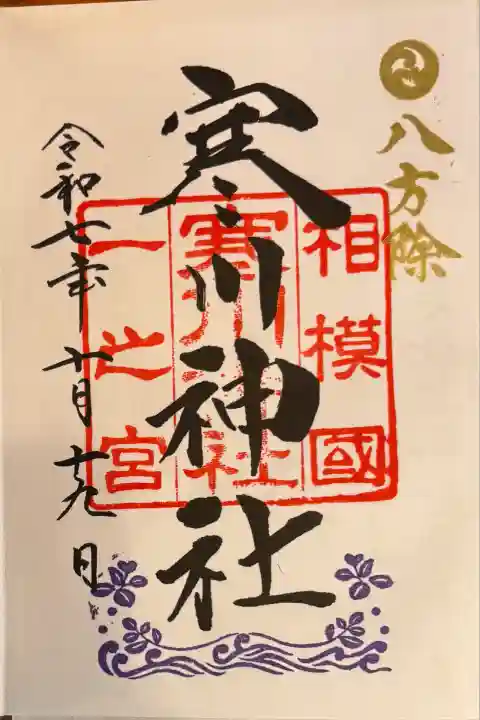 八方除
相模國
寒川神社
一之宮
寒川神社
令和七年十月十九日